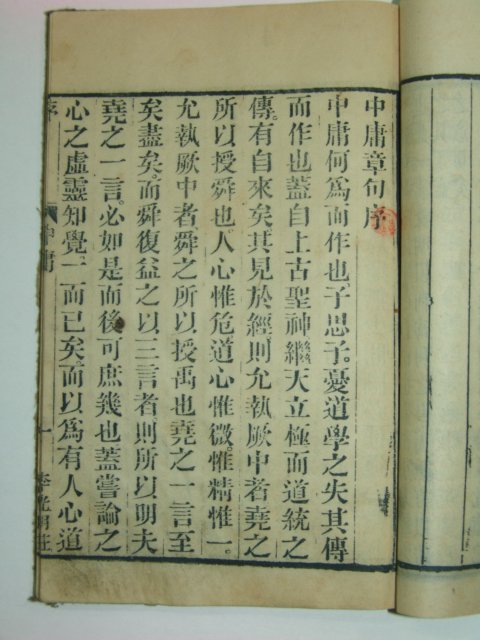 中庸章句序
中庸何爲而作也。子思子。憂道學之失其傳
而作也蓋自上古聖神繼天立極而道統之
傳。有自來矣其見於經則允執厥中者堯之
所以授舜也人心惟危道心惟微。惟精惟一。
允執厥中者舜之所以授禹也堯之一言至
矣盡矣。而舜復益之以三言者則所以明夫
堯之一言。必如是而後可庶幾也蓋嘗論之
心之虛靈知覺。一而已矣。而以爲有人心道
序 中庸 一 李光明莊